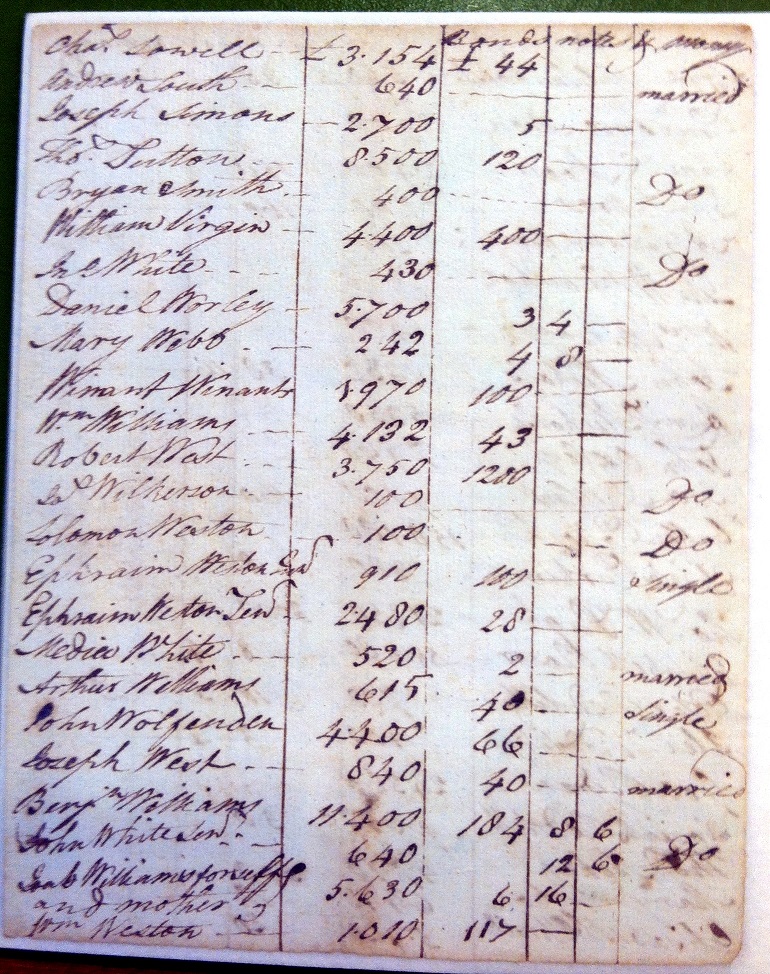 Chas. Sowell £ 3.154 Bonds notes & money £ 44
Andrew South 640 married
Joseph Simons 2.700 5
Thos. Sutton 8.500 120
Bryan Smith 400 Do
William Virgin 4.400 400
Jno. White 430 Do
Daniel Worley 5.700 3 4
Mary Webb 242 4 8
Winant Winants 1970 100
Wm Williams 4.132 43
Robert West 3.750 1200
Wilkerson 100 Do
Solomon Weston 100 Do
Ephraim Weston 910 100 single
Ephraim Weston Senr. 2480 28
Medice White 520 2 married
Arthur Williams 615 40 single
John Wolfenden 4400 66
Joseph West 840 40 married
Benjn. Williams 11.400 184 8 6
John White Senr. 640 12 6 Do
Williams for self
and mother 5.630 6 16
Wm Weston 1.010 117